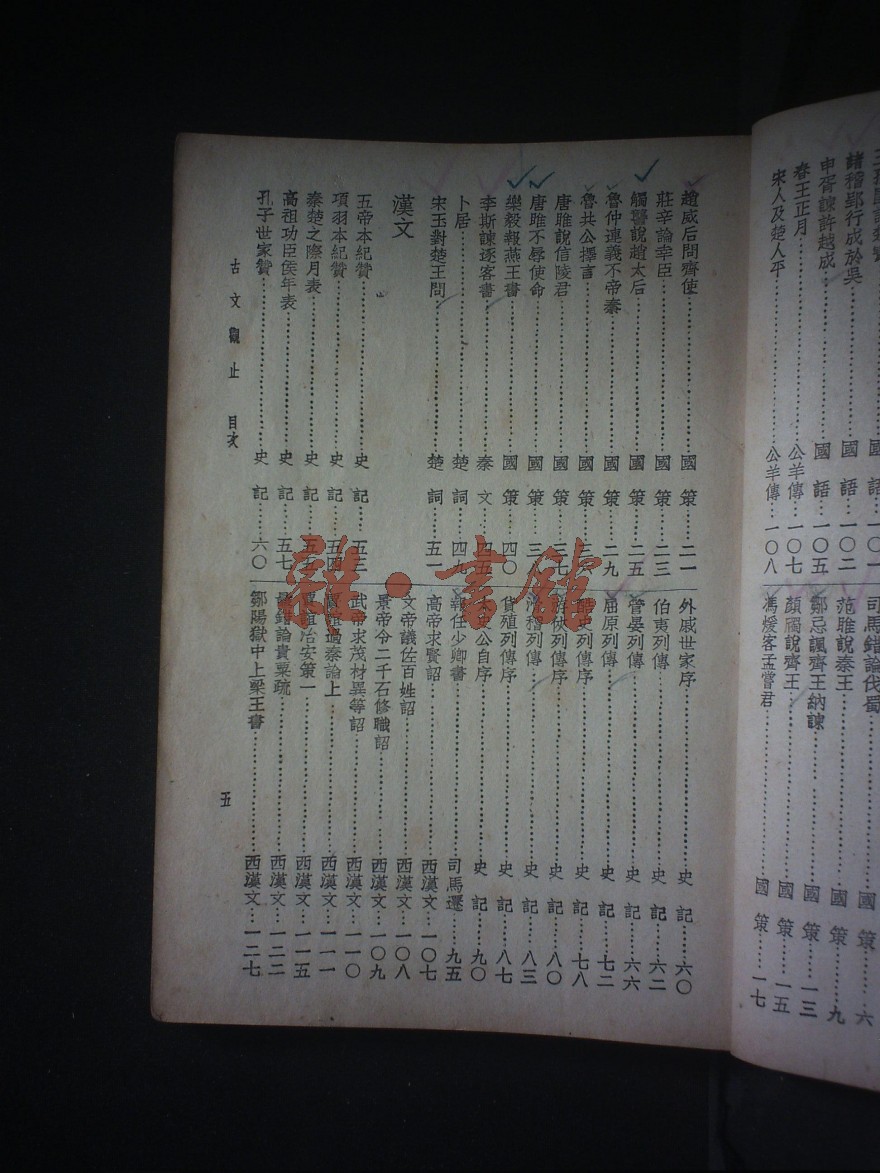 諸稽郢行成於吳……國語……一〇二
申胥諫許越成……國語……一〇五
春王正月……公羊傳……一〇七
宋人及楚人平……公羊傳……一〇八
司馬錯論伐蜀……國策……六
范雎說秦王……國策……九
鄒忌諷齊王納諫……國策……一三
顏斶說齊王……國策……一五
馮煖客孟嘗君……國策……一七
趙威后問齊使……國策……二一
莊辛論幸臣……國策……二三
觸讋說趙太后……國策……二五
魯仲連義不帝秦……國策……二九
魯共公擇言……國策……
唐雎說信陵君……國策……三七
唐雎不辱使命……國策……三
樂毅報燕王書……國策……四〇
李斯諫逐客書……秦文……四五
卜居……楚詞……四九
宋玉對楚王問……楚詞……五一
漢文
五帝本紀贊……史記……五三
項羽本紀贊……史記……五四
秦楚之際月表……史記……五五
高祖功臣侯年表……史記……五七
孔子世家贊……史記……六〇
外戚世家序……史記……六〇
伯夷列傳……史記……六二
管晏列傳……史記……六六
屈原列傳……史記……七二
酷吏列傳序……史記……七八
游俠列傳序……史記……八〇
滑稽列傳……史記……八三
貨殖列傳序……史記……八七
太史公自序……史記……九〇
報任少卿書……司馬遷……九五
高帝求賢詔……西漢文……一〇七
文帝議佐百姓詔……西漢文……一〇八
景帝令二千石修職詔……西漢文……一〇九
武帝求茂材異等詔……西漢文……一一〇
賈誼過秦論上……西漢文……一一一
賈誼治安策一……西漢文……一一五
鼂錯論貴粟疏……西漢文……一二二
鄒陽獄中上梁王書……西漢文……一二七
古文觀止 目次
五
雜·書館